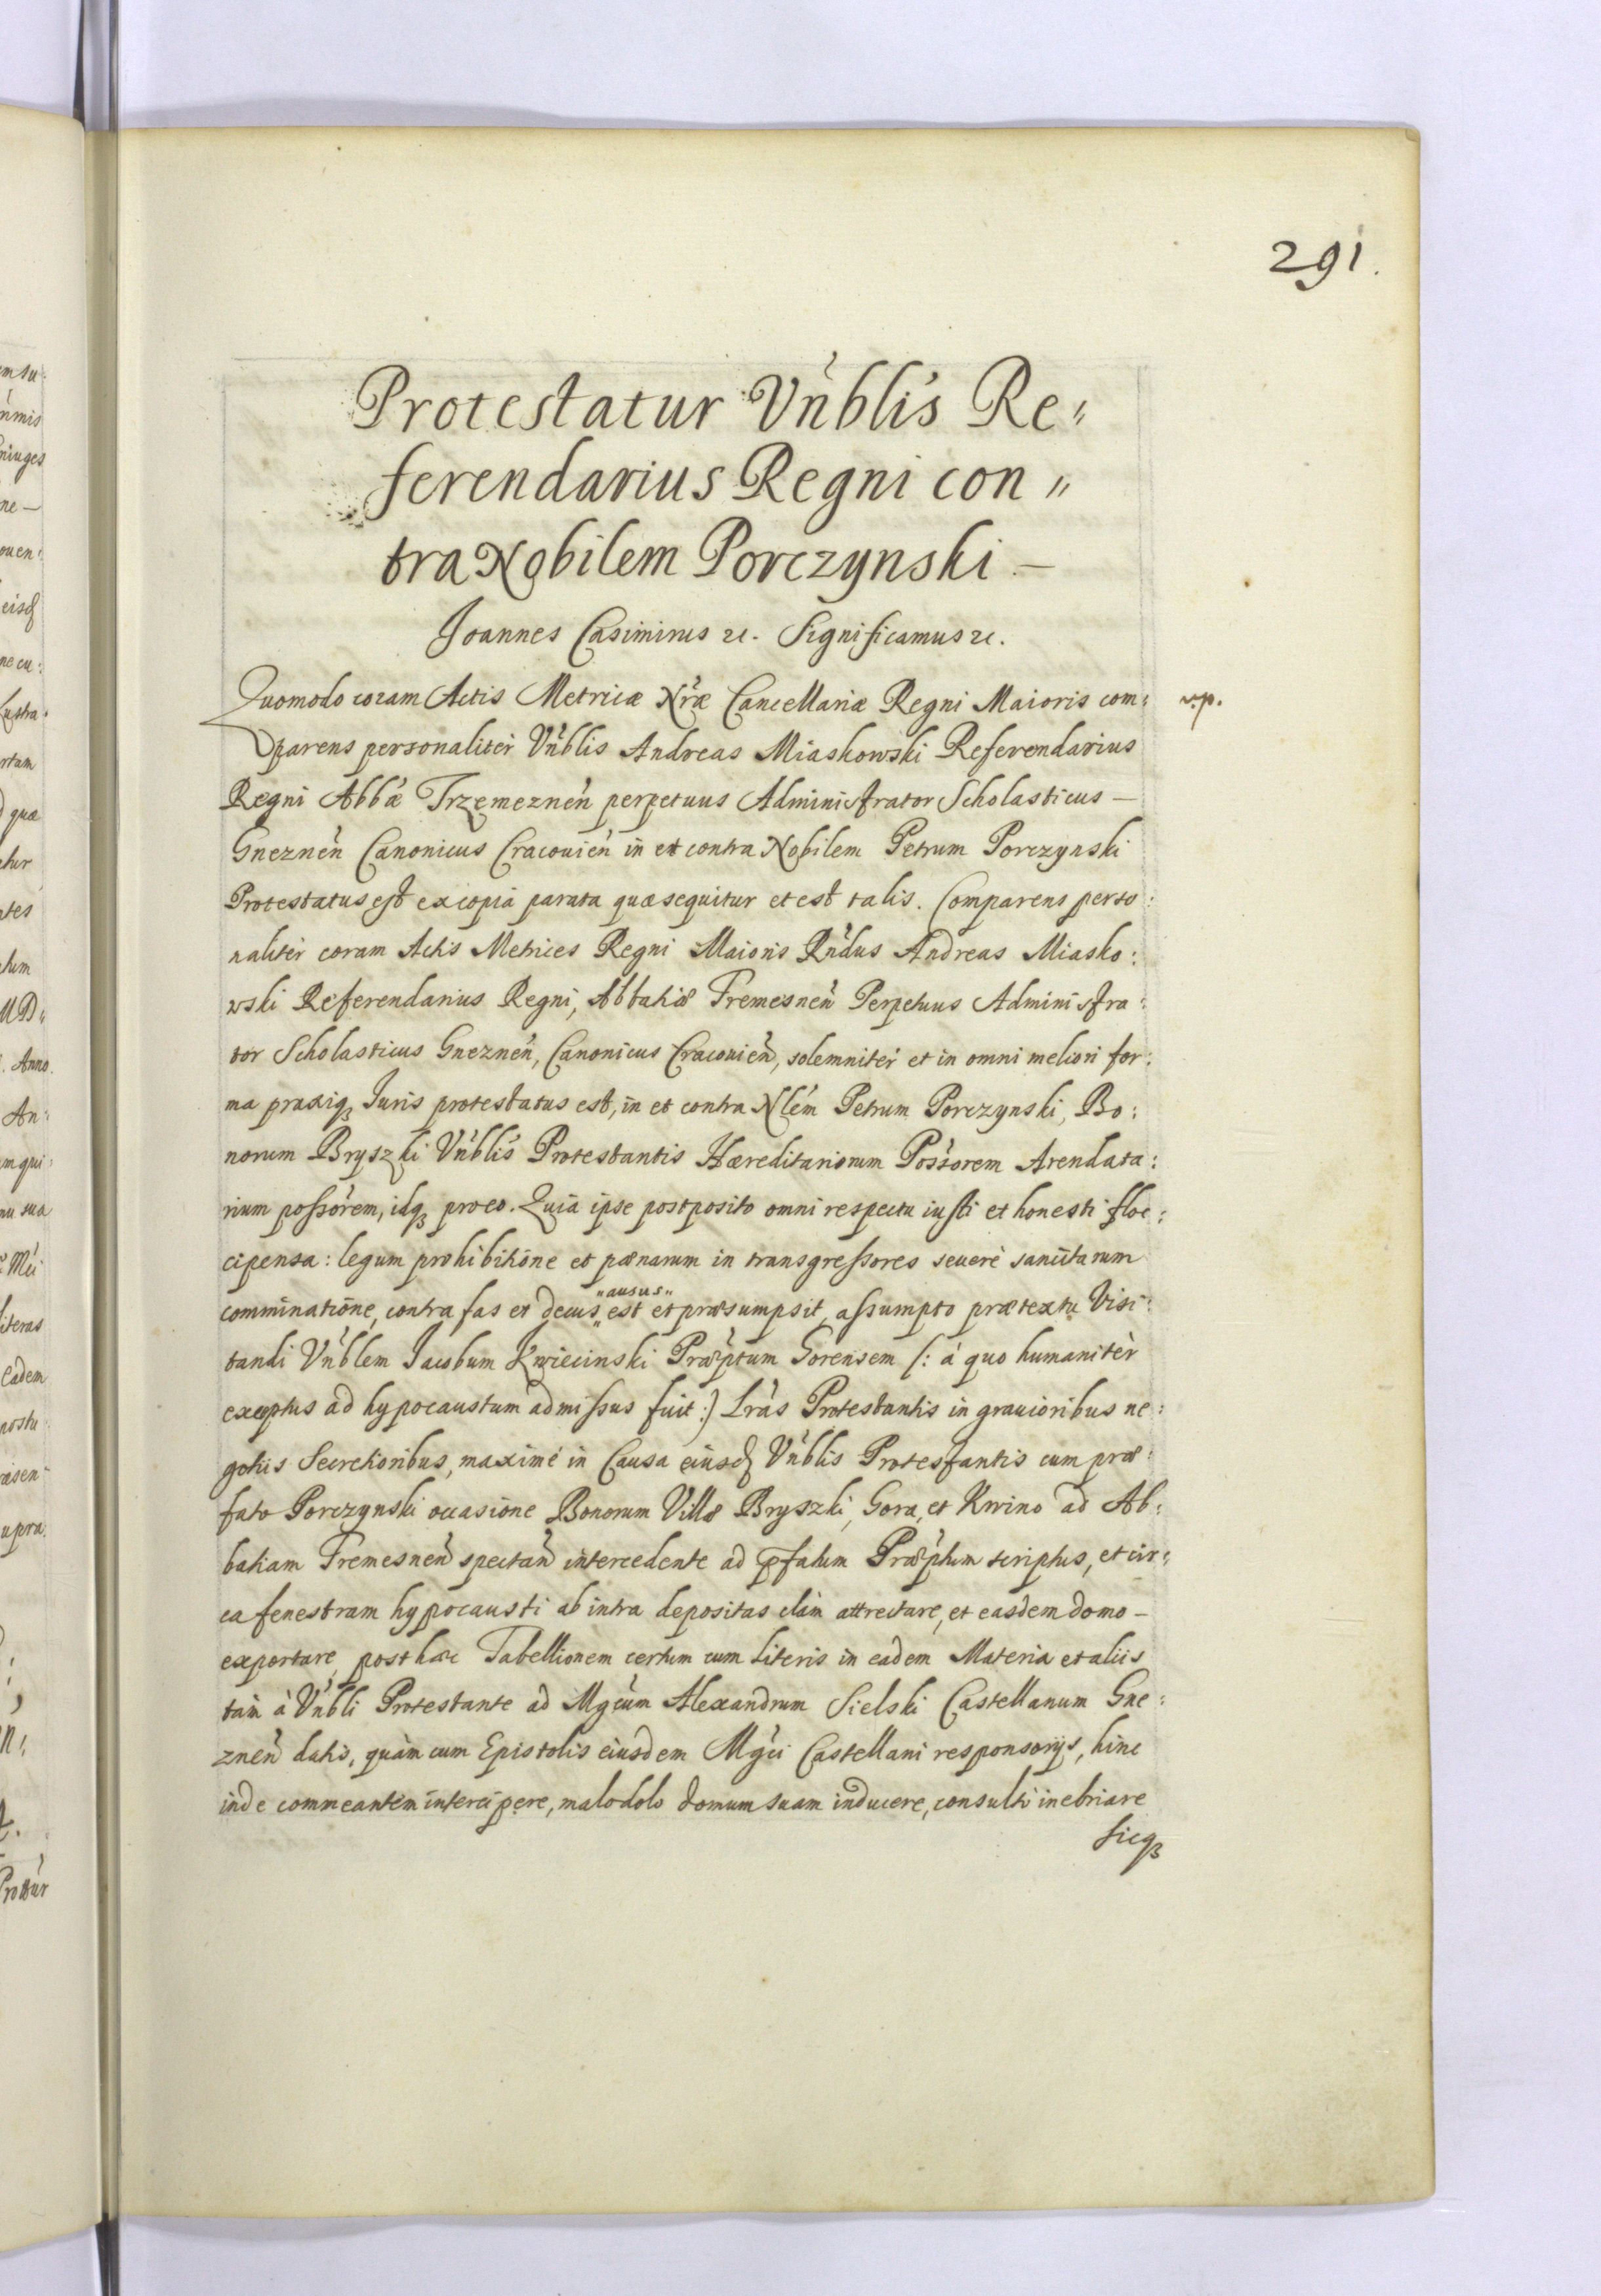 291.
Protestatur Vnblis Re„
ferendarius Regni con„
tra Nobilem Porczynski —
Joannes Casimirus etc. Significamus etc.
Quomodo coram Actis Metricæ Nræ Cancellariæ Regni Maioris com: v.p.
parens personaliter Vnblis Andreas Miaskowski Referendarius
Regni Abbæ Trzemeznen perpetuus Administrator Scholasticus —
Gneznen Canonicus Cracouien in et contra Nobilem Petrum Porczynski
Protestatus est ex copia parata quæ sequitur et est talis. Comparens perso:
naliter coram Actis Metrices Regni Maioris Rndus Andreas Miasko:
wski Referendarius Regni, Abbatiæ Tremesnen Perpetuus Administra:
tor Scholasticus Gneznen, Canonicus Cracouien, solemniter et in omni meliori for:
ma praxiq3 Iuris protestatus est, in et contra Nlem Petrum Porczynski, Bo:
norum Bryszki Vnblis Protestantis Hæreditariorum Possorem Arendata:
rium possorem, idq3 pro eo. Quia ipse postposito omni respectu iusti et honesti floc:
cipensa: legum prohibitione et pænarum in transgressores seuerè sancitarum
comminatione, contra fas et decus „ausus„ est et præsumpsit, assumpto prætextu Visi:
tandi Vnblem Jacobum Kwiecinski Præptum Gorensem /: à quo humanitèr
exceptus ad hypocaustum admissus fuit :/ Lras Protestantis in grauioribus ne:
gotiis Secretioribus, maximè in Causa eiusd Vnblis Protestantis cum præ:
fato Porczynski occasione Bonorum Villæ Bryszki, Gora, et Kwino ad Ab:
batiam Tremesnen spectan intercedente ad pfatum Præptum scriptus, et cir:
ca fenestram hypocausti ab intra depositas clàm attrectare, et easdem domo —
exportare, post hæc Tabellionem certum cum Literis in eadem Materia et aliis
tam à Vnbli Protestante ad Mgcum Alexandrum Sielski Castellanum Gne:
znen datis, quàm cum Epistolis eiusdem Mgci Castellani responsorijs, hinc
inde commeantem intercipere, malo dolo domum suam inducere, consultò inebriare
sicq3